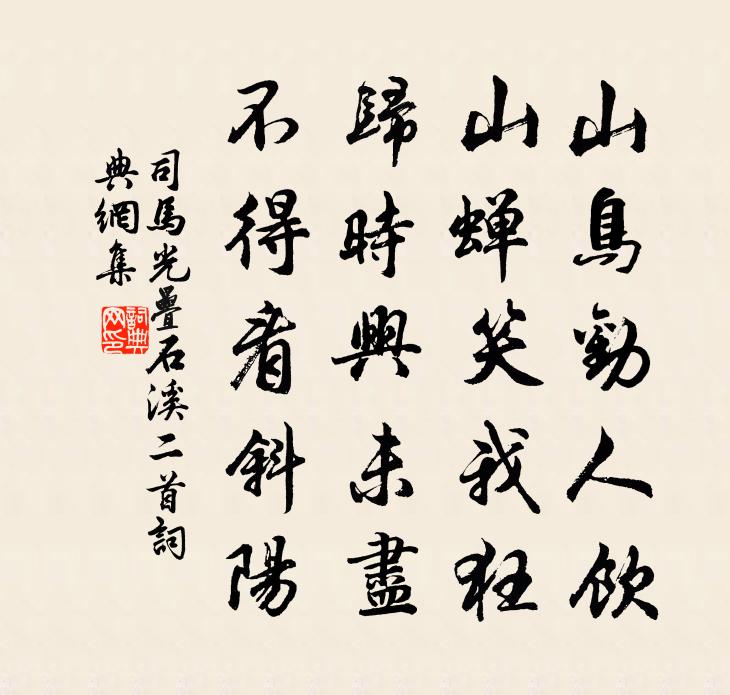 山鳥勸人飲
山蟬笑我狂
歸時興未盡
不得看斜陽
司馬光疊石溪二首詞
典網集
詞典
网印